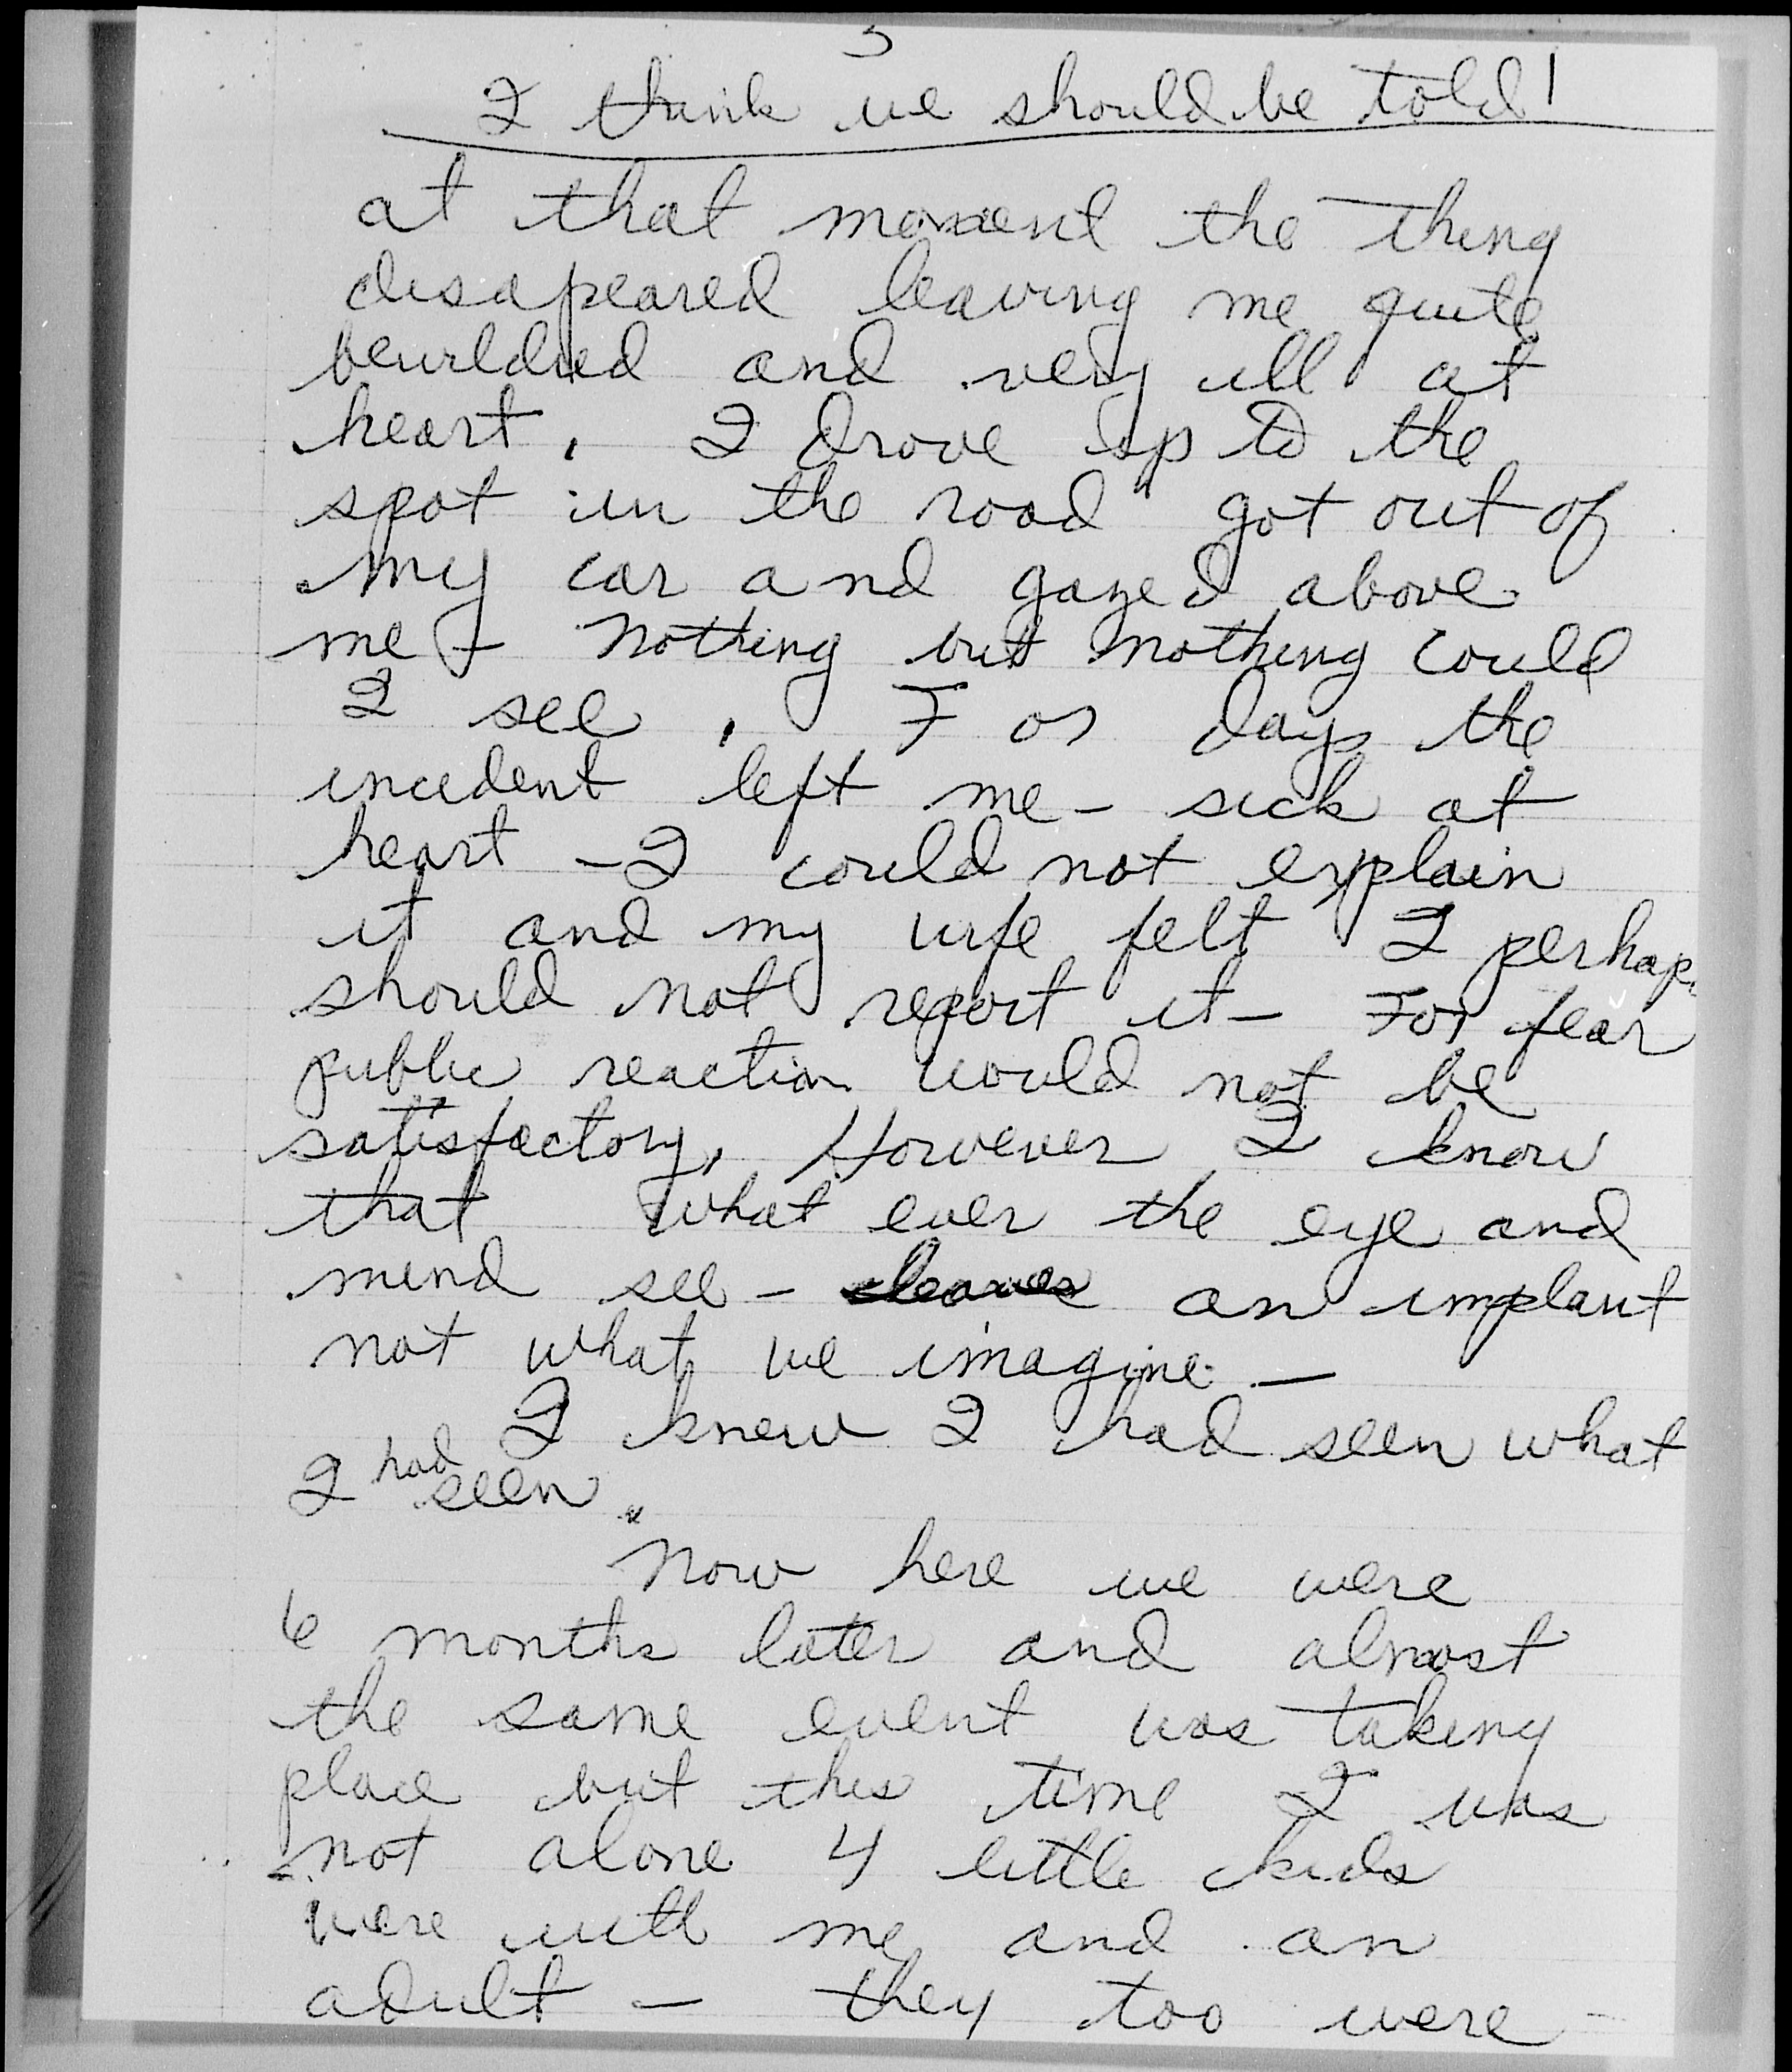 3
I think we should be told!
at that moment the thing
disapeared leaving me quite
bewildred and very ill at
heart. I drove up to the
spot in the road got out of
my car and gazed above
me - nothing but nothing could
I see. For days the
incedent left me - sick at
heart - I could not explain
it and my wife felt I perhaps
should not report it - For fear
public reaction would not be
satisfactory. However I know
that what ever the eye and
mind see - leaves an implant
not what we imagine -
I knew I had seen what
I had seen.
Now here we were
6 months later and almost
the same event was taking
place but this time I was
not alone 4 little kids
were with me and an
adult - they too were -